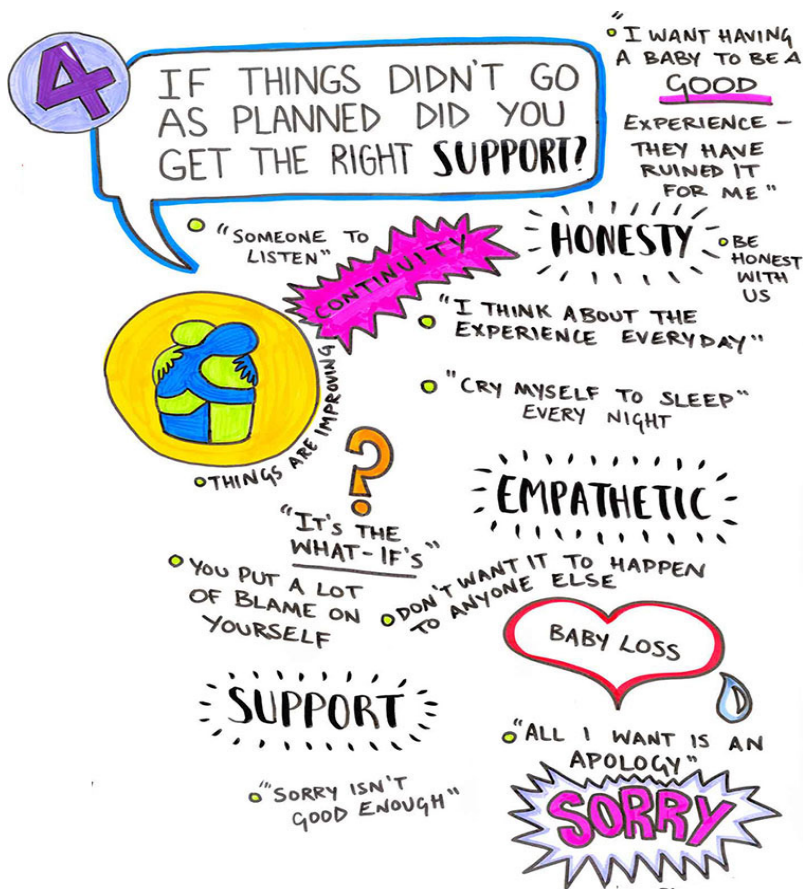 4
IF THINGS DIDN'T GO
AS PLANNED DID YOU
GET THE RIGHT SUPPORT?
"I WANT HAVING
A BABY TO BE A
GOOD
EXPERIENCE –
THEY HAVE
RUINED IT
FOR ME"
"SOMEONE TO
LISTEN"
CONTINUITY
HONESTY
BE
HONEST
WITH
US
"I THINK ABOUT THE
EXPERIENCE EVERYDAY"
THINGS ARE IMPROVING
"CRY MYSELF TO SLEEP"
EVERY NIGHT
?
"IT'S THE
WHAT-IF'S"
EMPATHETIC
YOU PUT A LOT
OF BLAME ON
YOURSELF
DON'T WANT IT TO HAPPEN
TO ANYONE ELSE
BABY LOSS
SUPPORT
"ALL I WANT IS AN
APOLOGY"
"SORRY ISN'T
GOOD ENOUGH"
SORRY